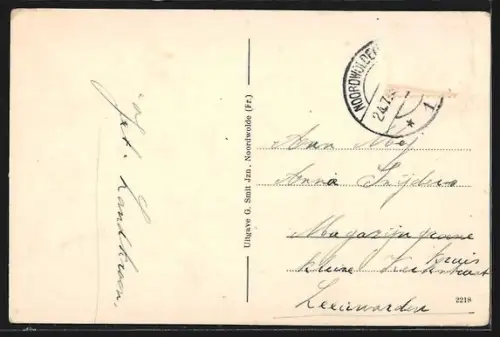 Jet. Landkroon.
Uitgave G. Smit Jzn., Noordwolde (Fr.)
NOORDWOLDE
24.7
1
Aan Mej
Anna Snijders
Magazijn groene
kruis
kleine Kerkstraat
Leeuwarden
2218